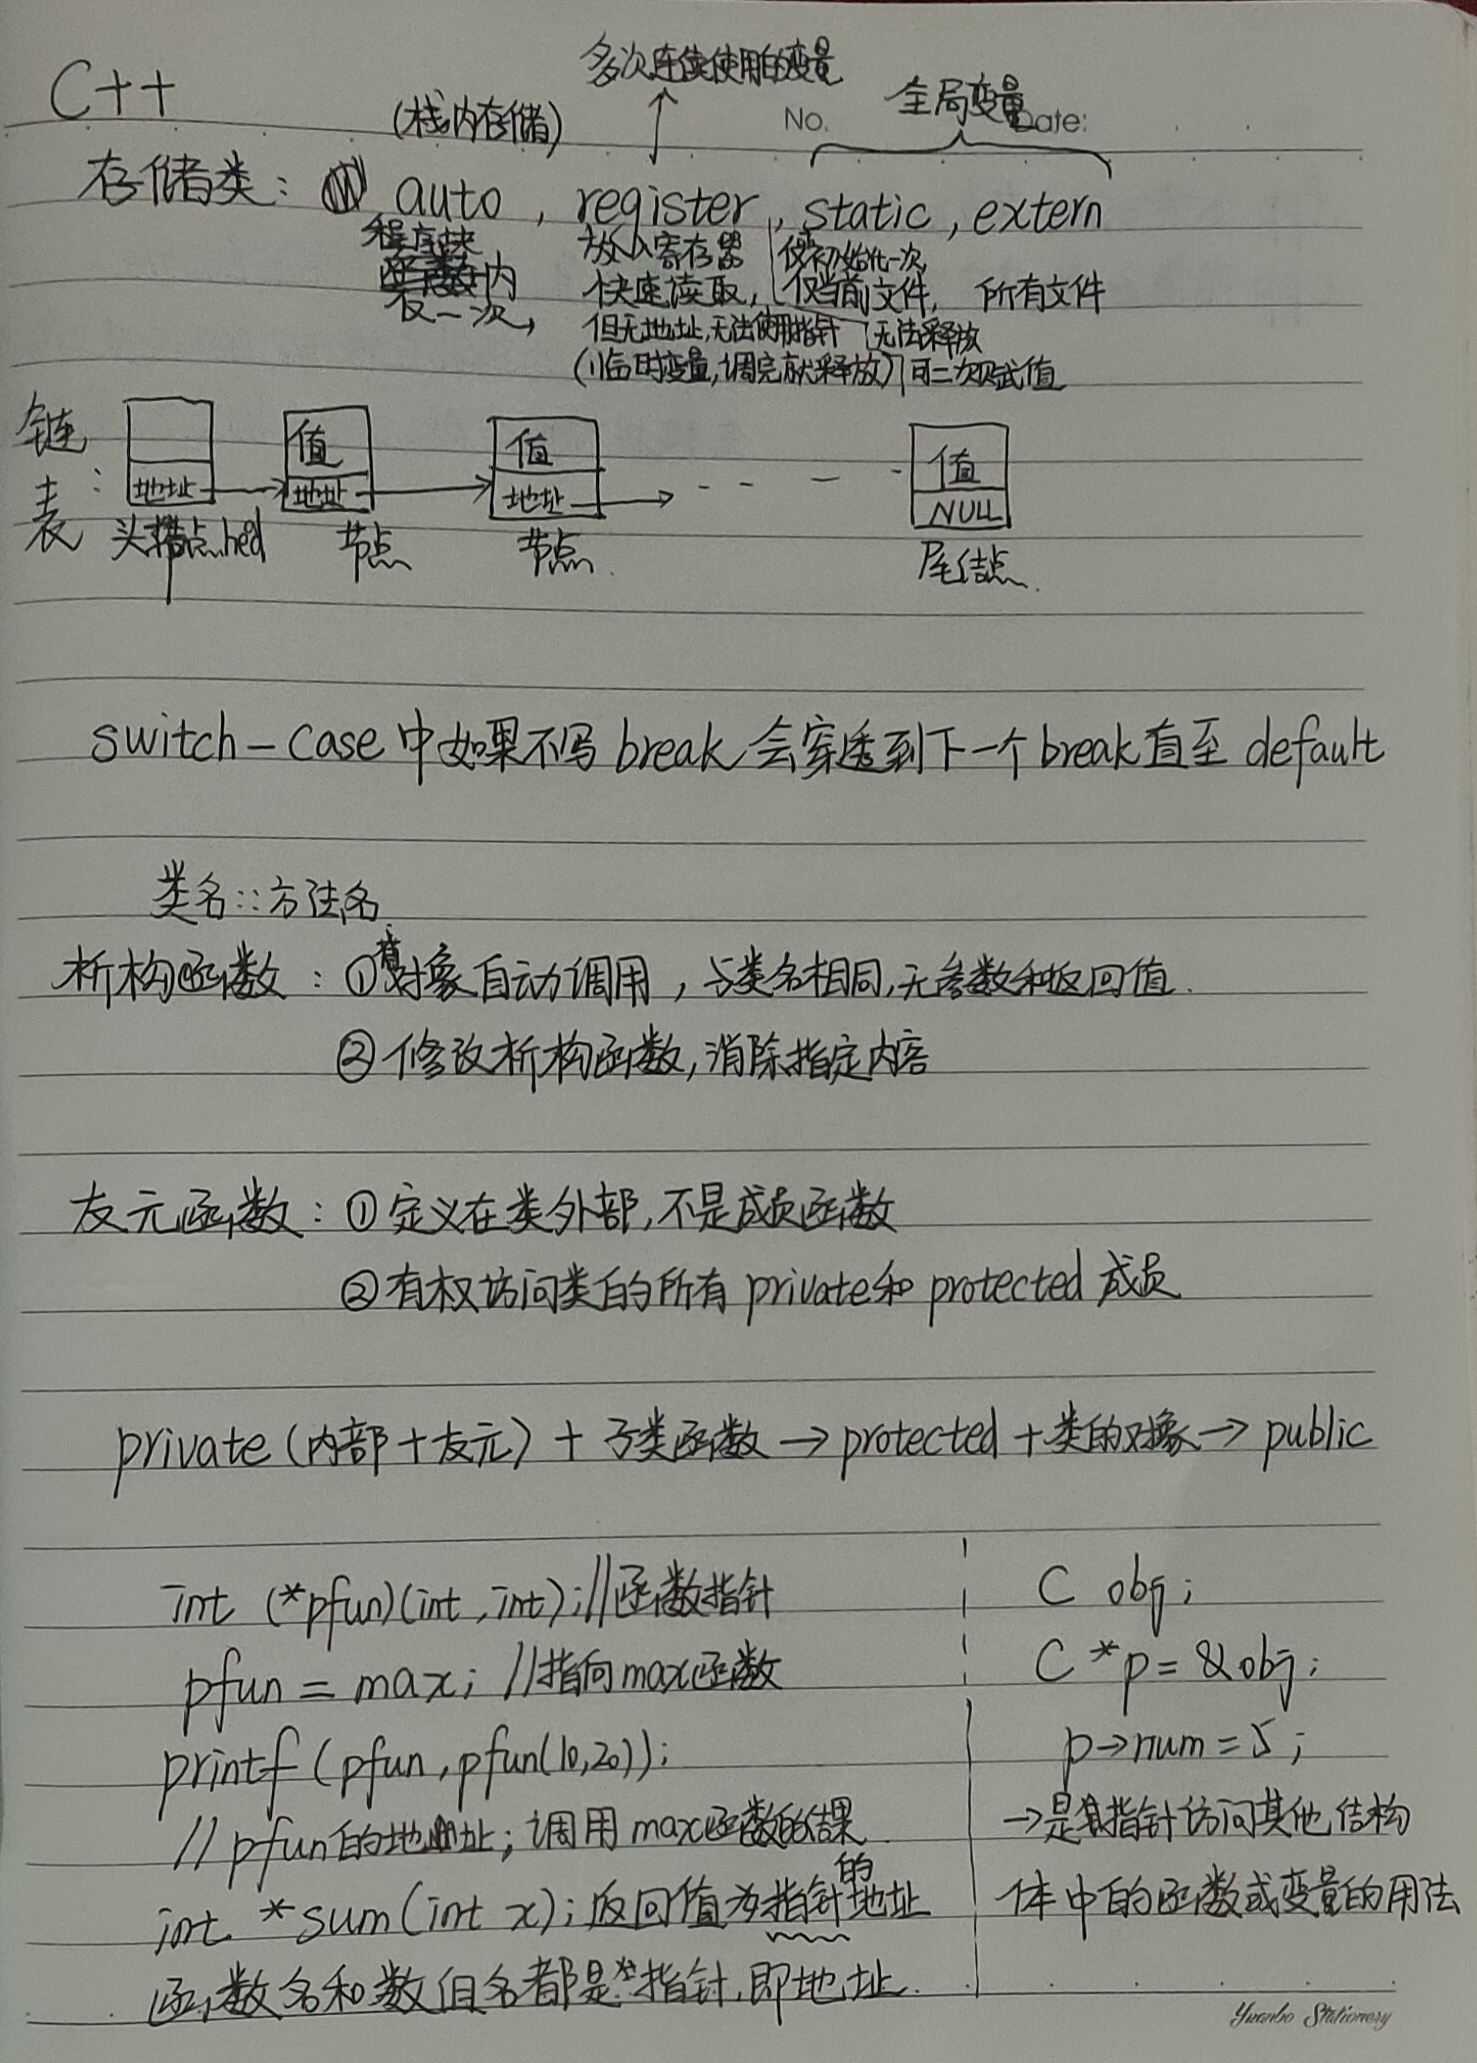 多次连续使用的变量
C++
(栈内存储)
No.
全局变量
Date:
存储类: auto, register, static, extern
程序块 放入寄存器 仅初始化一次
内 快速读取, 仅当前文件, 所有文件
仅一次, 但无地址,无法使用指针 无法释放
(临时变量,调完就释放) 可二次赋值
链表:
值 值 值
地址 地址 地址 NULL
头 点 hed 节点 节点. 尾结点.
switch-case 中如果不写 break 会穿透到下一个 break 直至 default
类名::方法名
析构函数: ①对象自动调用,与类名相同,无参数和返回值.
②修改析构函数,消除指定内容
友元函数: ①定义在类外部,不是成员函数
②有权访问类的所有 private和 protected 成员
private (内部+友元) + 子类函数 → protected + 类的对象 → public
int (*pfun)(int,int); //函数指针
pfun = max; //指向max函数
printf (pfun, pfun(10,20));
// pfun的地址; 调用max函数的结果
int *sum(int x); 返回值为指针的地址
函数名和数组名都是指针,即地址.
C obj;
C *p = &obj;
p→num = 5;
→是指针访问其他结构
体中的函数或变量的用法
Yuanbo Stationery